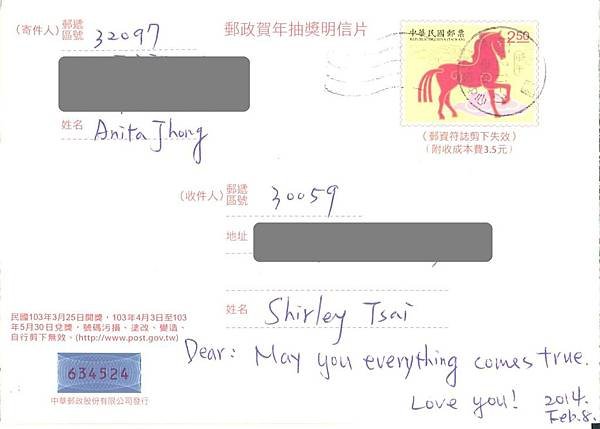 郵政賀年抽獎明信片
(寄件人) 郵遞區號 32097
姓名 Anita Jhong
中華民國郵票
REPUBLIC OF CHINA (TAIWAN)
2.50
(郵資符誌剪下失效)
(附收成本費3.5元)
(收件人) 郵遞區號 30059
地址
姓名 Shirley Tsai
Dear: May you everything comes true.
Love you! 2014.
Feb.8.
民國103年3月25日開獎,103年4月3日至103
年5月30日兌獎,號碼污損、塗改、變造、
自行剪下無效。(http://www.post.gov.tw)
634524
中華郵政股份有限公司發行